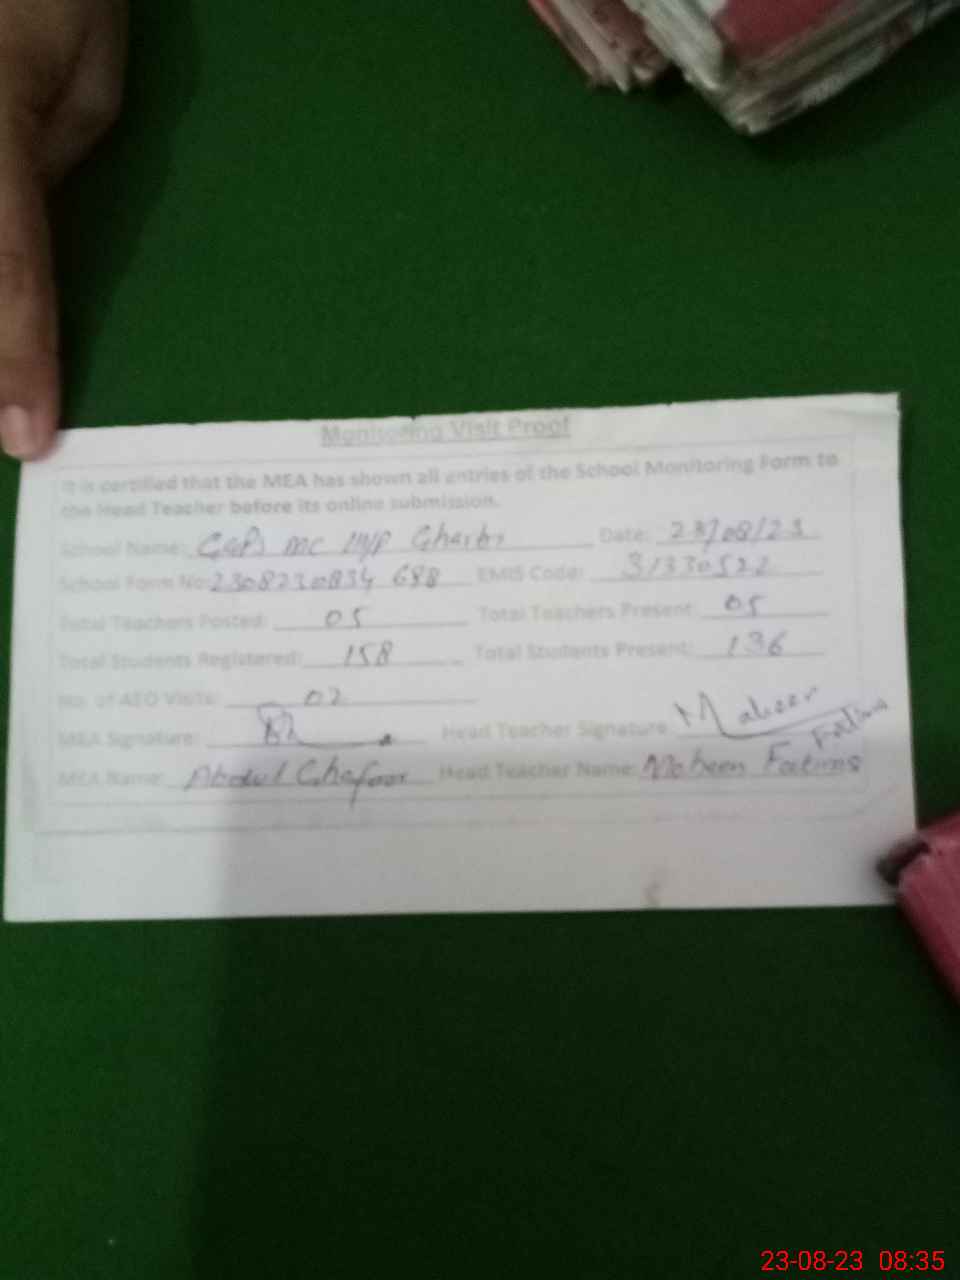 Monitoring Visit Proof
It is certified that the MEA has shown all entries of the School Monitoring Form to
the Head Teacher before its online submission.
School Name: MC Gharbi Date: 23/08/23
School Form No: 2308230834 688 EMIS Code: 31330522
Total Teachers Posted: 05 Total Teachers Present: 05
Total Students Registered: 158 Total Students Present: 136
No. of AEO Visits: 02
MEA Signature: Head Teacher Signature: Maheen Fatima
MEA Name: Abdul Ghafoor Head Teacher Name: Maheen Fatima
23-08-23 08:35